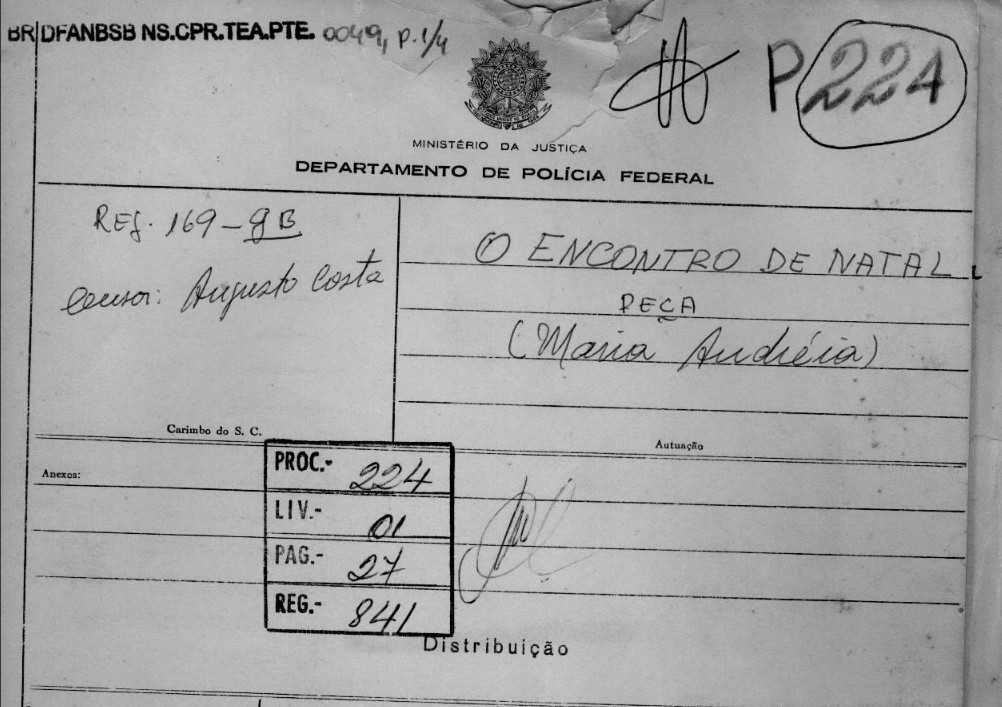 BR DFANBSB NS.CPR.TEA.PTE. 0049, p.1/4
P 224
MINISTÉRIO DA JUSTIÇA
DEPARTAMENTO DE POLÍCIA FEDERAL
REG. 169-gB
Censor: Augusto Costa
O ENCONTRO DE NATAL
PEÇA
(Maria Andréia)
Carimbo do S. C.
Autuação
Anexos:
PROC.- 224
LIV.- 01
PAG.- 27
REG.- 841
Distribuição